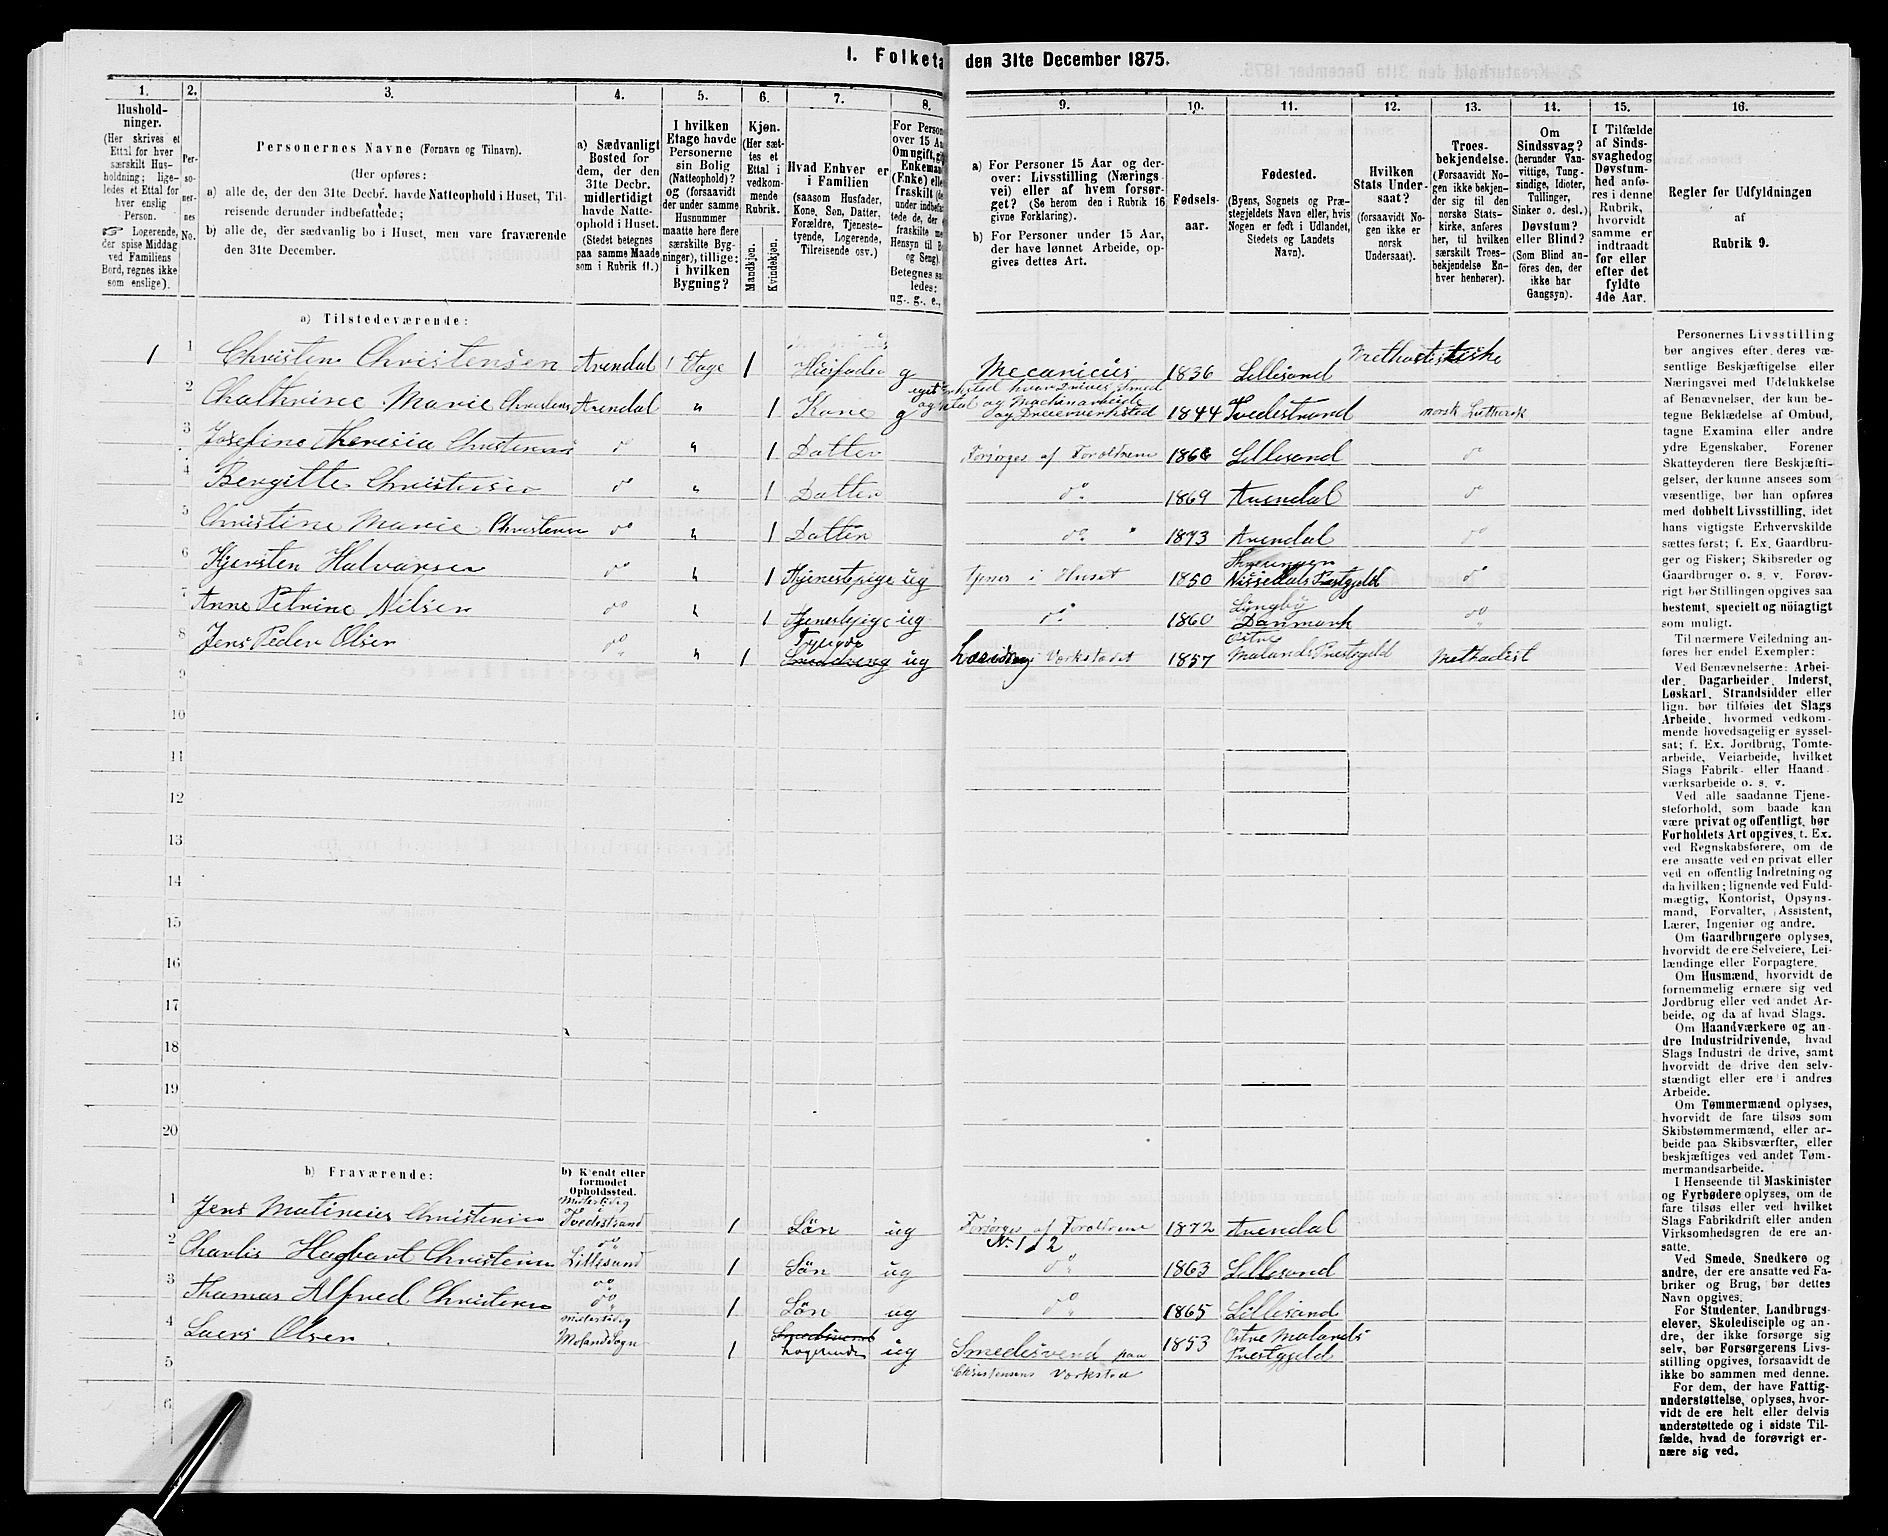 I. Folketæ
den 31te December 1875.
1.
Hushold-
ninger.
(Her skrives et
Ettal for hver
særskilt Hus-
holdning; lige-
ledes et Ettal for
hver enslig
Person.
☞ Logerende,
der spise Middag
ved Familiens
Bord, regnes ikke
som enslige).
2.
Per-
so-
ner-
nes
No.
3.
Personernes Navne (Fornavn og Tilnavn).
(Her opføres:
a) alle de, der den 31te Decbr. havde Natteophold i Huset, Til-
reisende derunder indbefattede;
b) alle de, der sædvanlig bo i Huset, men vare fraværende
den 31te December.
4.
a) Sædvanligt
Bosted for
dem, der den
31te Decbr.
midlertidigt
havde Natte-
ophold i Huset.
(Stedet betegnes
paa samme Maade
som i Rubrik 11.)
5.
I hvilken
Etage havde
Personerne
sin Bolig
(Natteophold)?
og (forsaavidt
der under samme
Husnummer
maatte høre flere
særskilte Byg-
ninger), tillige:
i hvilken
Bygning?
6.
Kjøn.
(Her sæt-
tes et
Ettal i
vedkom-
mende
Rubrik.
Mandkjøn.
Kvindekjøn.
7.
Hvad Enhver er
i Familien
(saasom Husfader,
Kone, Søn, Datter,
Forældre, Tjeneste-
tyende, Logerende,
Tilreisende osv.)
8.
For Person
over 15 Aa
Om ugift, gi
Enkeman
(Enke) elle
fraskilt (de
under indbefa
tede de, der e
fraskilte me
Hensyn til Bo
og Seng).
Betegnes saa
ledes:
ug., g., e.,
9.
a) For Personer 15 Aar og der-
over: Livsstilling (Nærings-
vei) eller af hvem forsør-
get? (Se herom den i Rubrik 16
givne Forklaring).
b) For Personer under 15 Aar,
der have lønnet Arbeide, op-
gives dettes Art.
10.
Fødsels-
aar.
11.
Fødested.
(Byens, Sognets og Præ-
stegjeldets Navn eller, hvis
Nogen er født i Udlandet,
Stedets og Landets
Navn).
12.
Hvilken
Stats Under-
saat?
(forsaavidt No-
gen ikke er
norsk
Undersaat).
13.
Troes-
bekjendelse.
(Forsaavidt No-
gen ikke bekjen-
der sig til den
norske Stats-
kirke, anføres
her, til hvilken
særskilt Troes-
bekjendelse En-
hver henhører).
14.
Om
Sindssvag?
(herunder Van-
vittige, Tung-
sindige, Idioter,
Tullinger,
Sinker o. desl.)
Døvstum?
eller Blind?
(Som Blind an-
føres den, der
ikke har
Gangsyn).
15.
I Tilfælde
af Sinds-
svaghed og
Døvstum-
hed anfø-
res i denne
Rubrik,
hvorvidt
samme er
indtraadt
før eller
efter det
fyldte
4de Aar.
16.
Regler før Udfyldningen
af
Rubrik 9.
a) Tilstedeværende:
1 1 Christen Christensen Arendal 1 Etage 1 Husfader g Mecanicus 1836 Lillesand Methodistiske
og Machinarbeide
2 Chathrine Marie Christens Arendal " 1 Kone g og Dreierverksted 1844 Tvedestrand norsk Luthersk
3 Josefine Theresia Christensen do " 1 Datter Forsørges af Foroldrene 1866 Lillesand do
4 Bergitte Christensen do " 1 Datter do 1869 Arendal do
5 Christine Marie Christensen do " 1 Datter do " 1873 Arendal do
6 Kjersten Halvorsen do " 1 Tjenestepige ug tjener i Huset 1850 Nissedals Prestgjeld do
7 Anne Petrine Nilsen do " 1 Tjenestepige ug do 1860 Lyngby Danmark do
8 Jens Peder Olsen do " 1 ug Værkstedet 1857 Østre Molands Prestegjeld Methodist
9
10
11
12
13
14
15
16
17
18
19
20
b) Fraværende:
b) Kjendt eller
formodet
Opholdssted.
1 Jens Matineius Christensen Midlertidig i Tvedestrand 1 Sön ug Forsørges af Foroldrene No 1 & 2 1872 Arendal
2 Charlis Hagbart Christensen do Lillesand 1 Sön ug do 1863 Lillesand
3 Thomas Alfred Christensen do 1 Sön ug do 1865 Lillesand
4 Laers Olsen midlertidig Moland Sogn 1 Logerende ug Smedesvend paa 1853 Østre Molands Prestgjeld
Christensens Værksted
5
6
Personernes Livsstilling
bør angives efter deres væ-
sentlige Beskjæftigelse eller
Næringsvei med Udelukkelse
af Benævnelser, der kun be-
tegne Beklædelse af Ombud,
tagne Examina eller andre
ydre Egenskaber. Forener
Skatteyderen flere Beskjæfti-
gelser, der kunne ansees som
væsentlige, bør han opføres
med dobbelt Livsstilling, idet
hans vigtigste Erhvervskilde
sættes først; f. Ex. Gaardbru-
ger og Fisker; Skibsreder og
Gaardbruger o. s. v. Forøv-
rigt bør Stillingen opgives saa
bestemt, specielt og nöiagtigt
som muligt.
Til nærmere Veiledning an-
føres her endel Exempler:
Ved Benævnelserne: Arbei-
der, Dagarbeider, Inderst,
Løskarl, Strandsidder eller
lign. bør tilføies det Slags
Arbeide, hvormed vedkom-
mende hovedsagelig er syssel-
sat; f. Ex. Jordbrug, Tomte-
arbeide, Veiarbeide, hvilket
Slags Fabrik- eller Haand-
værksarbeide o. s. v.
Ved alle saadanne Tjene-
steforhold, som baade kan
være privat og offentligt, bør
Forholdets Art opgives, t. Ex.
ved Regnskabsførere, om de
ere ansatte ved en privat eller
ved en offentlig Indretning og
da hvilken; lignende ved Fuld-
mægtig, Kontorist, Opsyns-
mand, Forvalter, Assistent,
Lærer, Ingeniør og andre.
Om Gaardbrugere oplyses,
hvorvidt de ere Selveiere, Lei-
lændinge eller Forpagtere.
Om Husmænd, hvorvidt de
fornemmelig ernære sig ved
Jordbrug eller ved andet Ar-
beide, og da af hvad Slags.
Om Haandværkere og an-
dre Industridrivende, hvad
Slags Industri de drive, samt
hvorvidt de drive den selv-
stændigt eller ere i andres
Arbeide.
Om Tømmermænd oplyses,
hvorvidt de fare tilsøs som
Skibstømmermænd, eller ar-
beide paa Skibsværfter, eller
beskjæftiges ved andet Tøm-
mermandsarbeide.
I Henseende til Maskinister
og Fyrbødere oplyses, om de
fare tilsøs eller ved hvilket
Slags Fabrikdrift eller anden
Virksomhedsgren de ere an-
satte.
Ved Smede, Snedkere og
andre, der ere ansatte ved Fa-
briker og Brug, bør dettes
Navn opgives.
For Studenter, Landbrugs-
elever, Skoledisciple og an-
dre, der ikke forsørge sig
selv, bør Forsørgerens Livs-
stilling opgives, forsaavidt de
ikke bo sammen med denne.
For dem, der have Fattig-
understøttelse, oplyses, hvor-
vidt de ere helt eller delvis
understøttede og i sidste Til-
fælde, hvad de forøvrigt er-
nære sig ved.